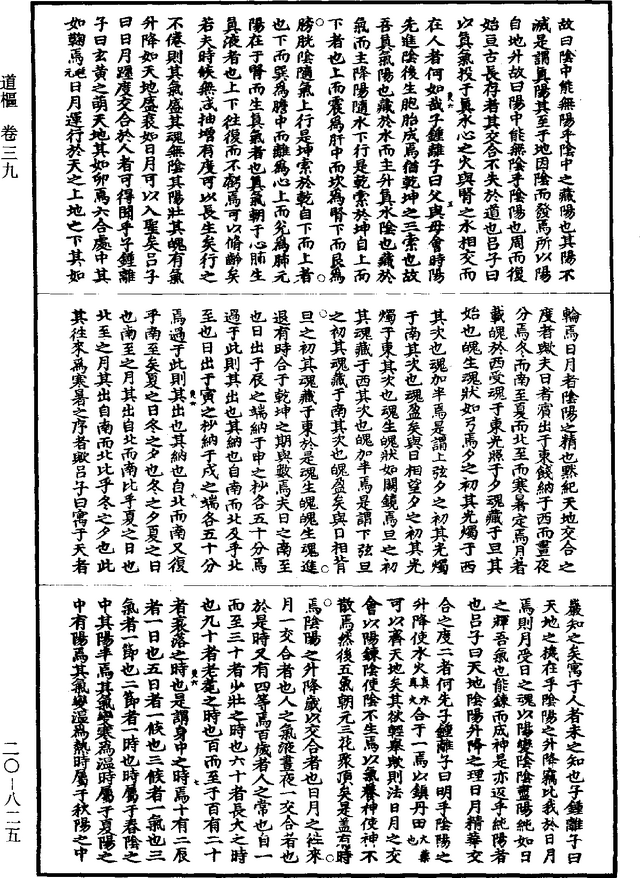 道樞 卷三九
二〇-八二五
故曰陰中能無陽乎陰中之藏陽也其陽不
滅是謂真陽其至于地因陰而發焉所以陽
自地升故曰陽中能無陰乎陰陽也周而復
始亘古長存者其交合不失於道也呂子曰
以真氣投于真水心之火與腎之水相交而
在人者何如哉子鍾離子曰父與母會時陽
先進陰後生胞胎成焉猶乾坤之三索也故
吾真氣陽也藏於水而主升真水陰也藏於
氣而主降陽隨水下行是乾索於坤自上而
下者也上而震為肝中而坎為腎下而艮為
膀胱陰隨氣上行是坤索於乾自下而上者
也下而巽為膽中而離為心上而兌為肺元
陽在于腎而生真氣者也真氣朝于心肺生
真液者也上下往復而不虧焉可以脩齡矣
若夫時候無忒抽增有度可以長生矣行之
不倦則其氣盛其魂無陰其陽壯其魄有氣
升降如天地盛衰如日月可以入聖矣呂子
曰日月躔度交合於人者可得聞乎子鍾離
子曰玄黃之萌天地其如卵焉六合處中其
如鞠焉日月運行於天之上地之下其如
輪焉日月者陰陽之精也默紀天地交合之
度者歟夫日者賓出于東餞納于西而晝夜
分焉冬而南至夏而北至而寒暑定焉月者
載魄於西受魂于東光照于夕魂藏于旦其
始也魄生魂狀如弓焉夕之初其光燭于西
其次也魂加半焉是謂上弦夕之初其光燭
于南其次也魂盈矣與日相望夕之初其光
燭于東其次也魂生魄狀如闕鏡焉旦之初
其魂藏于西其次也魄加半焉是謂下弦旦
之初其魂藏于南其次也魄盈矣與日相背
旦之初其魂藏于東於是魂生魄魄生魂進
退有時合于乾坤之期與數焉夫日之南至
也日出于辰之端納于申之杪各五十分焉
過于此則其出也其納也自南而北及乎北
至也日出于寅之杪納于戌之端各五十分
焉過于此則其出也其納也自北而南又復
乎南至矣夏之日冬之夕也冬之夕夏之日
也南至之月其出自北而南比乎夏之日也
北至之月其出自南而北比乎冬之夕也此
其往來為寒暑之序者歟呂子曰寓于天者
嚴知之矣寓于人者未之知也子鍾離子曰
天地之機在乎陰陽之升降竊比我於日月
焉則月受日之魂以陽變陰陰靈陽純如日
之輝吾氣也能鍊而成神是亦返乎純陽者
也呂子曰天地陰陽升降之理日月精華交
合之度二者何先子鍾離子曰明乎陰陽之
升降使水火真水真火合于一焉以鎮丹田大藥也
可以齊天地矣其欲輕舉歟則法日月之交
會以陽鍊陰使陰不生焉以氣養神使神不
散焉然後五氣朝元三花聚頂矣是蓋有時
焉陰陽之升降歲以交合者也日月之往來
月一交合者也人之氣液晝夜一交合者也
於是時又有四等焉百歲者人之常也自一
而至三十者少壯之時也六十者長大之時
也九十者老耄之時也百而至于百有二十
者衰落之時也是謂身中之時焉十有二辰
者一日也五日者一候也三候者一氣也三
氣者一節也二節者一時也時屬于春陰之
中其陽半焉其氣變寒為溫時屬于夏陽之
中有陽焉其氣變溫為熱時屬于秋陽之中